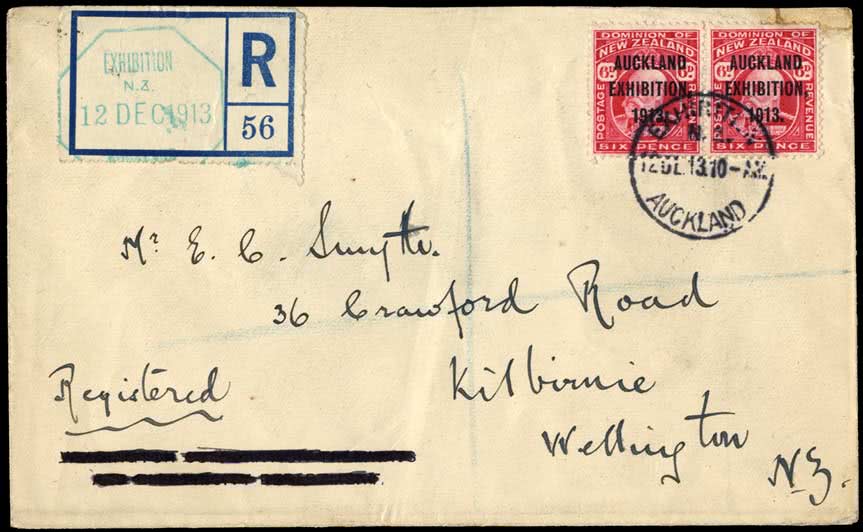 EXHIBITION
N.Z.
12 DEC 1913
R
56
DOMINION OF
NEW ZEALAND
6D 6D
AUCKLAND
EXHIBITION,
1913.
POSTAGE
REVENUE
SIX PENCE
DOMINION OF
NEW ZEALAND
6D 6D
AUCKLAND
EXHIBITION,
1913.
POSTAGE
REVENUE
SIX PENCE
12 DE. 13. 10-AM
AUCKLAND
Mr. E. C. Smythe.
36 Crawford Road
Kilbirnie
Wellington
N.Z.
Registered